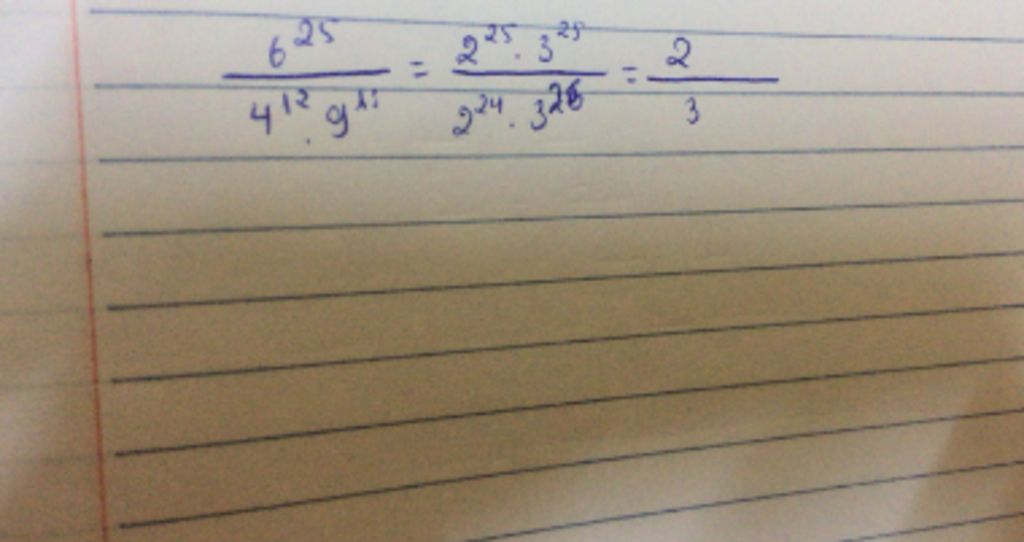 6^25 / 4^12 . 9^13 = 2^25 . 3^25 / 2^24 . 3^26 = 2 / 3